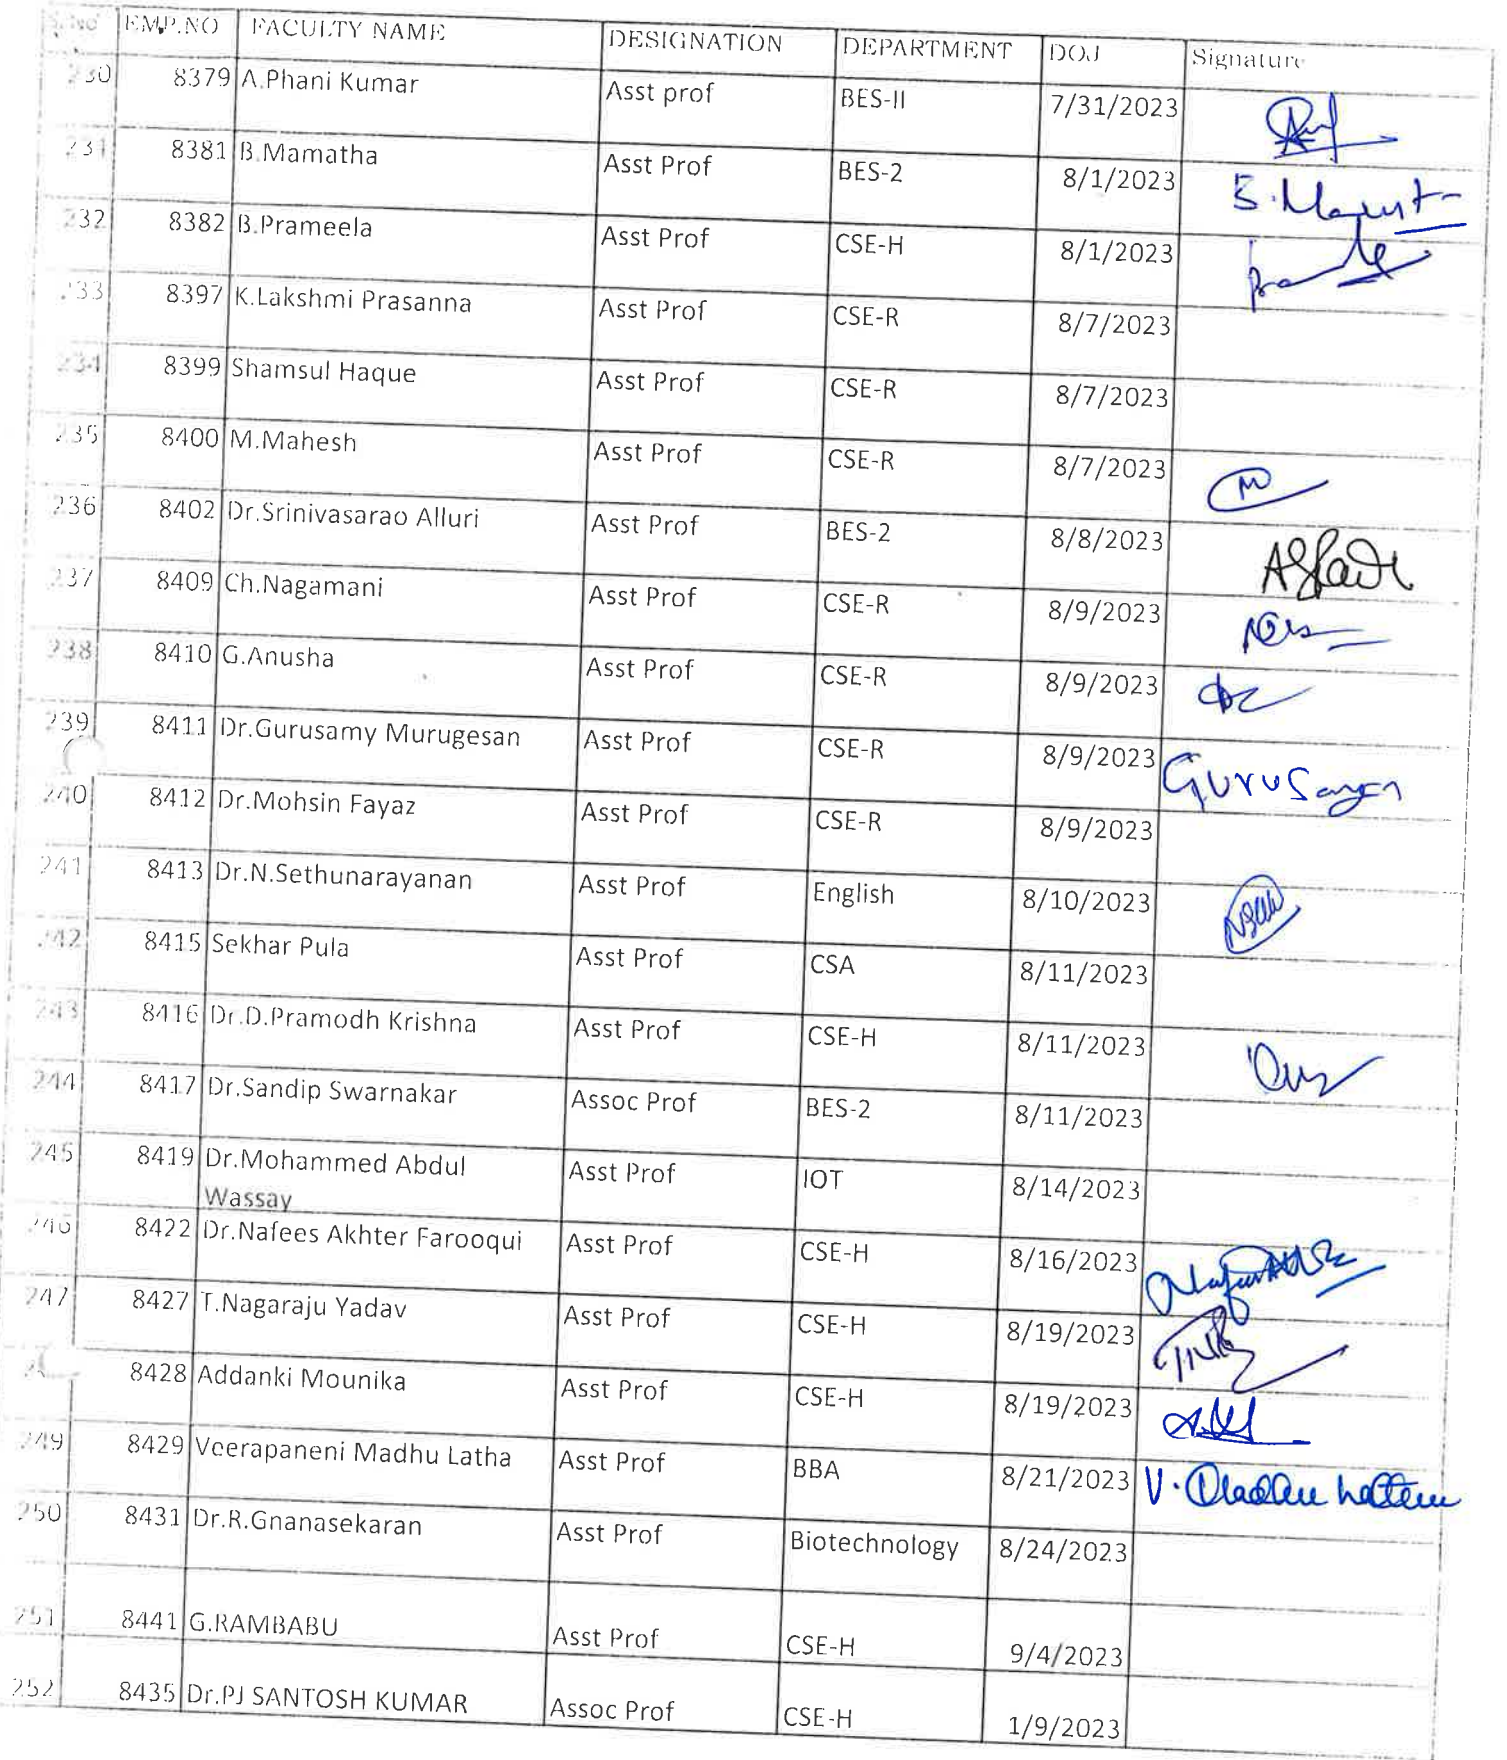 S.No EMP.NO FACULTY NAME DESIGNATION DEPARTMENT DOJ Signature
230 8379 A.Phani Kumar Asst prof BES-II 7/31/2023
231 8381 B.Mamatha Asst Prof BES-2 8/1/2023
232 8382 B.Prameela Asst Prof CSE-H 8/1/2023
233 8397 K.Lakshmi Prasanna Asst Prof CSE-R 8/7/2023
234 8399 Shamsul Haque Asst Prof CSE-R 8/7/2023
235 8400 M.Mahesh Asst Prof CSE-R 8/7/2023
236 8402 Dr.Srinivasarao Alluri Asst Prof BES-2 8/8/2023
237 8409 Ch.Nagamani Asst Prof CSE-R 8/9/2023
238 8410 G.Anusha Asst Prof CSE-R 8/9/2023
239 8411 Dr.Gurusamy Murugesan Asst Prof CSE-R 8/9/2023
240 8412 Dr.Mohsin Fayaz Asst Prof CSE-R 8/9/2023
241 8413 Dr.N.Sethunarayanan Asst Prof English 8/10/2023
242 8415 Sekhar Pula Asst Prof CSA 8/11/2023
243 8416 Dr.D.Pramodh Krishna Asst Prof CSE-H 8/11/2023
244 8417 Dr.Sandip Swarnakar Assoc Prof BES-2 8/11/2023
245 8419 Dr.Mohammed Abdul Asst Prof IOT 8/14/2023
Wassay
246 8422 Dr.Nafees Akhter Farooqui Asst Prof CSE-H 8/16/2023
247 8427 T.Nagaraju Yadav Asst Prof CSE-H 8/19/2023
8428 Addanki Mounika Asst Prof CSE-H 8/19/2023
249 8429 Veerapaneni Madhu Latha Asst Prof BBA 8/21/2023
250 8431 Dr.R.Gnanasekaran Asst Prof Biotechnology 8/24/2023
251 8441 G.RAMBABU Asst Prof CSE-H 9/4/2023
252 8435 Dr.PJ SANTOSH KUMAR Assoc Prof CSE-H 1/9/2023